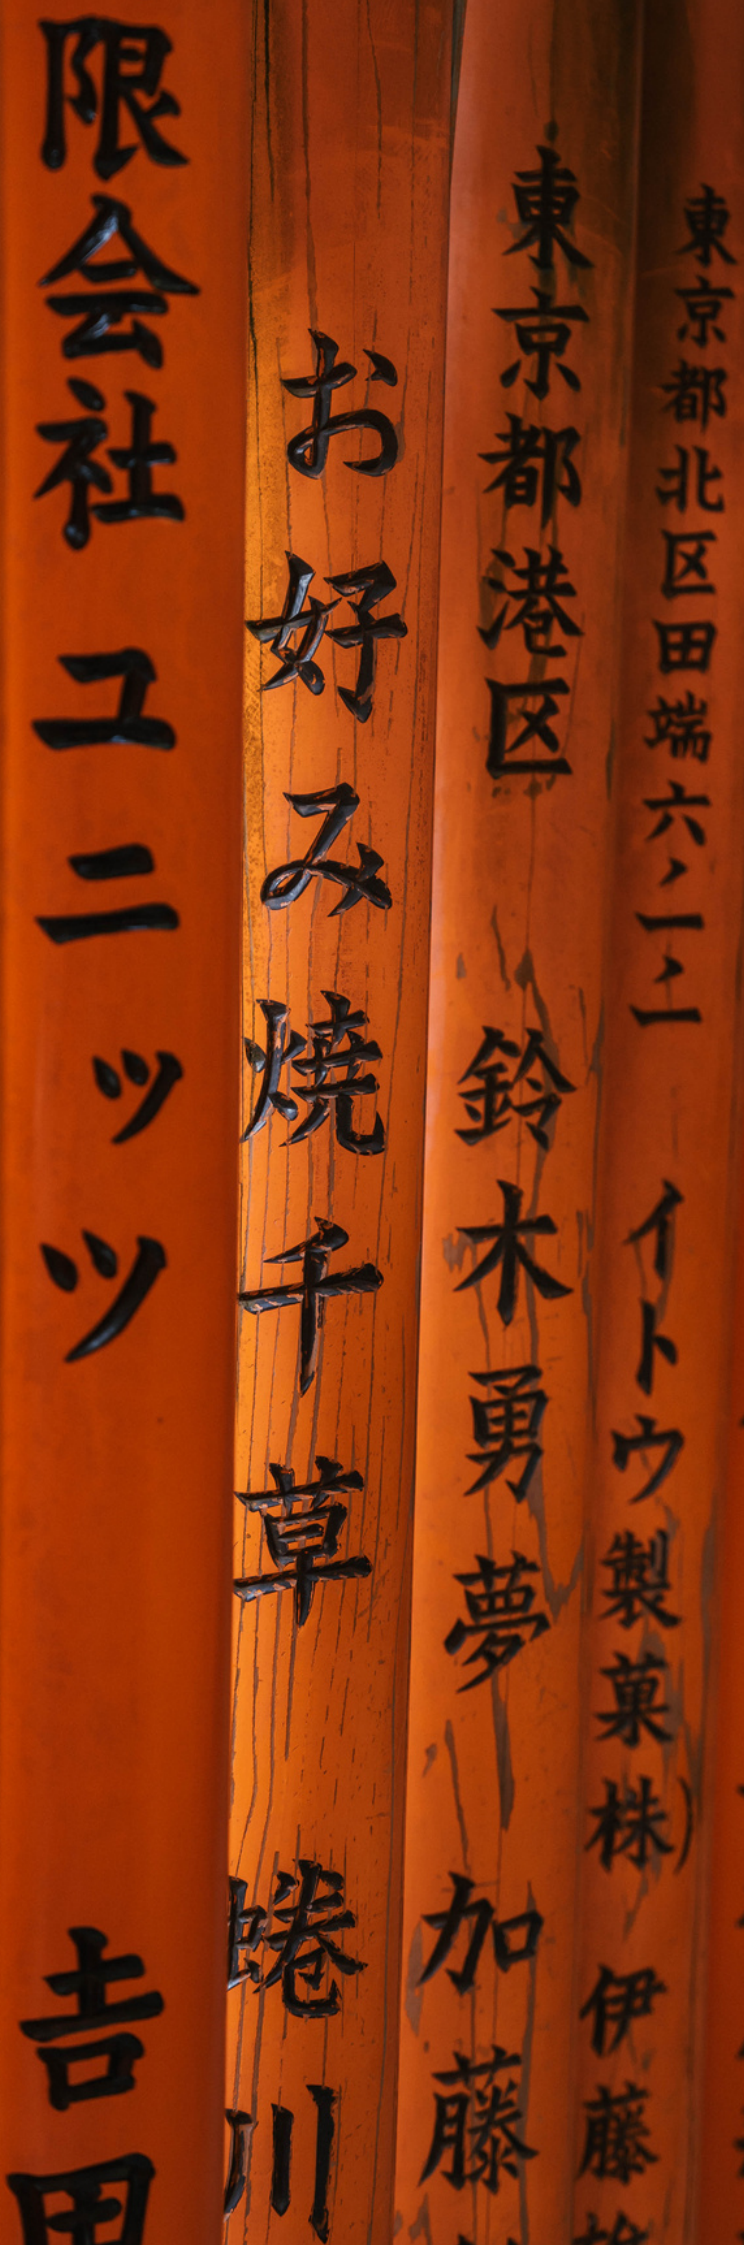 東京都北区田端六ノ一ノ一 イトウ製菓株) 伊藤
東京都港区 鈴木勇夢 加藤
お好み焼千草 蜷川
限会社ユニッツ 𠮷田